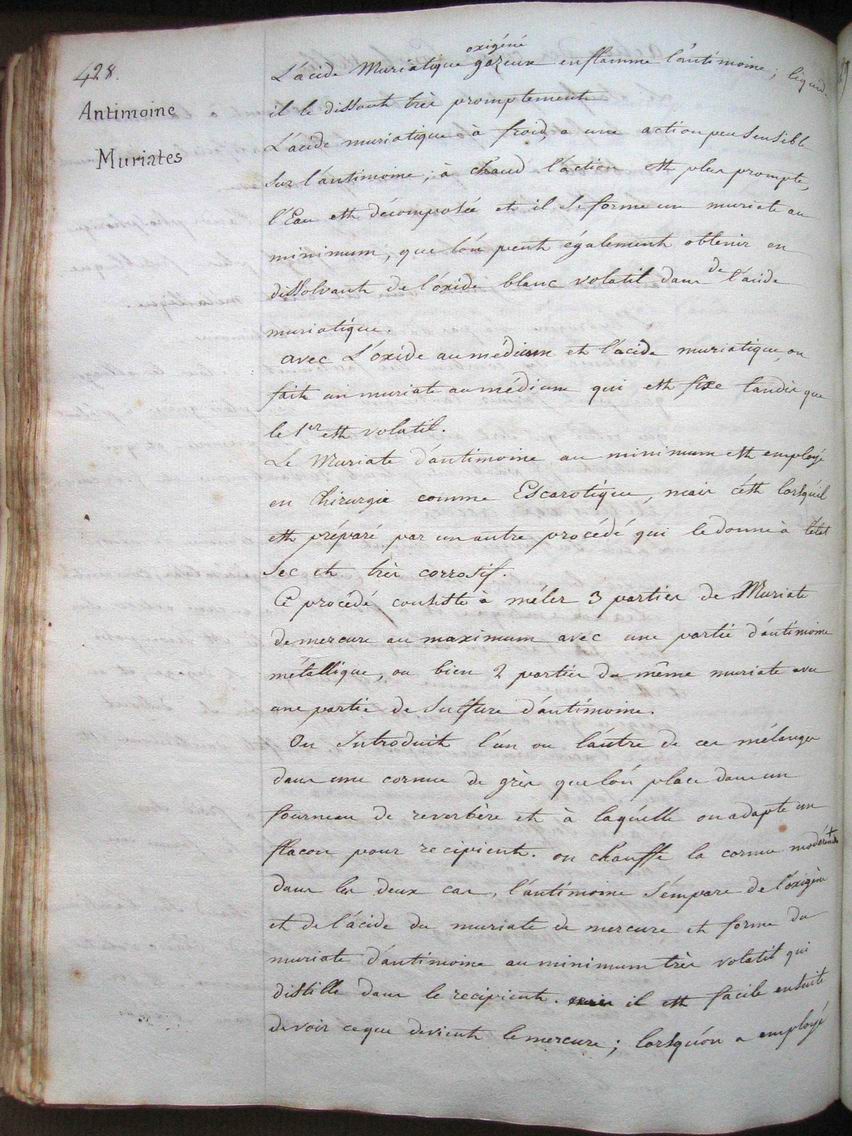 428.
Antimoine
Muriates
oxigéné
L'acide Muriatique gazeux enflamme l'antimoine; liquide
il le dissout très promptement
L'acide muriatique à froid, a une action peu sensible
sur l'antimoine; à chaud l'action est plus prompte,
l'Eau est décomposée et il se forme un muriate au
minimum, que l'on peut également obtenir en
dissolvant de l'oxide blanc volatil dans de l'acide
muriatique.
avec L'oxide au médium et l'acide muriatique on
fait un muriate au médium qui est fixe tandis que
le 1er est volatil.
Le Muriate d'antimoine au minimum est employé
en chirurgie comme Escarotique, mais c'est lorsqu'il
est préparé par un autre procédé qui le donne à l'état
sec et très corrosif.
Ce procédé consiste à mêler 3 parties de Muriate
de mercure au maximum avec une partie d'antimoine
métallique, ou bien 2 parties du même muriate avec
une partie de Sulfure d'antimoine.
On Introduit l'un ou l'autre de ces mélanges
dans une cornue de grès que l'on place dans un
fourneau de reverbère et à laquelle on adapte un
flacon pour recipient. on chauffe la cornue modérément
dans les deux cas, l'antimoine s'empare de l'oxigène
et de l'acide du muriate de mercure et forme du
muriate d'antimoine au minimum très volatil qui
distille dans le recipient. il est facile ensuite
de voir ce que devient le mercure; lorsqu'on a employé